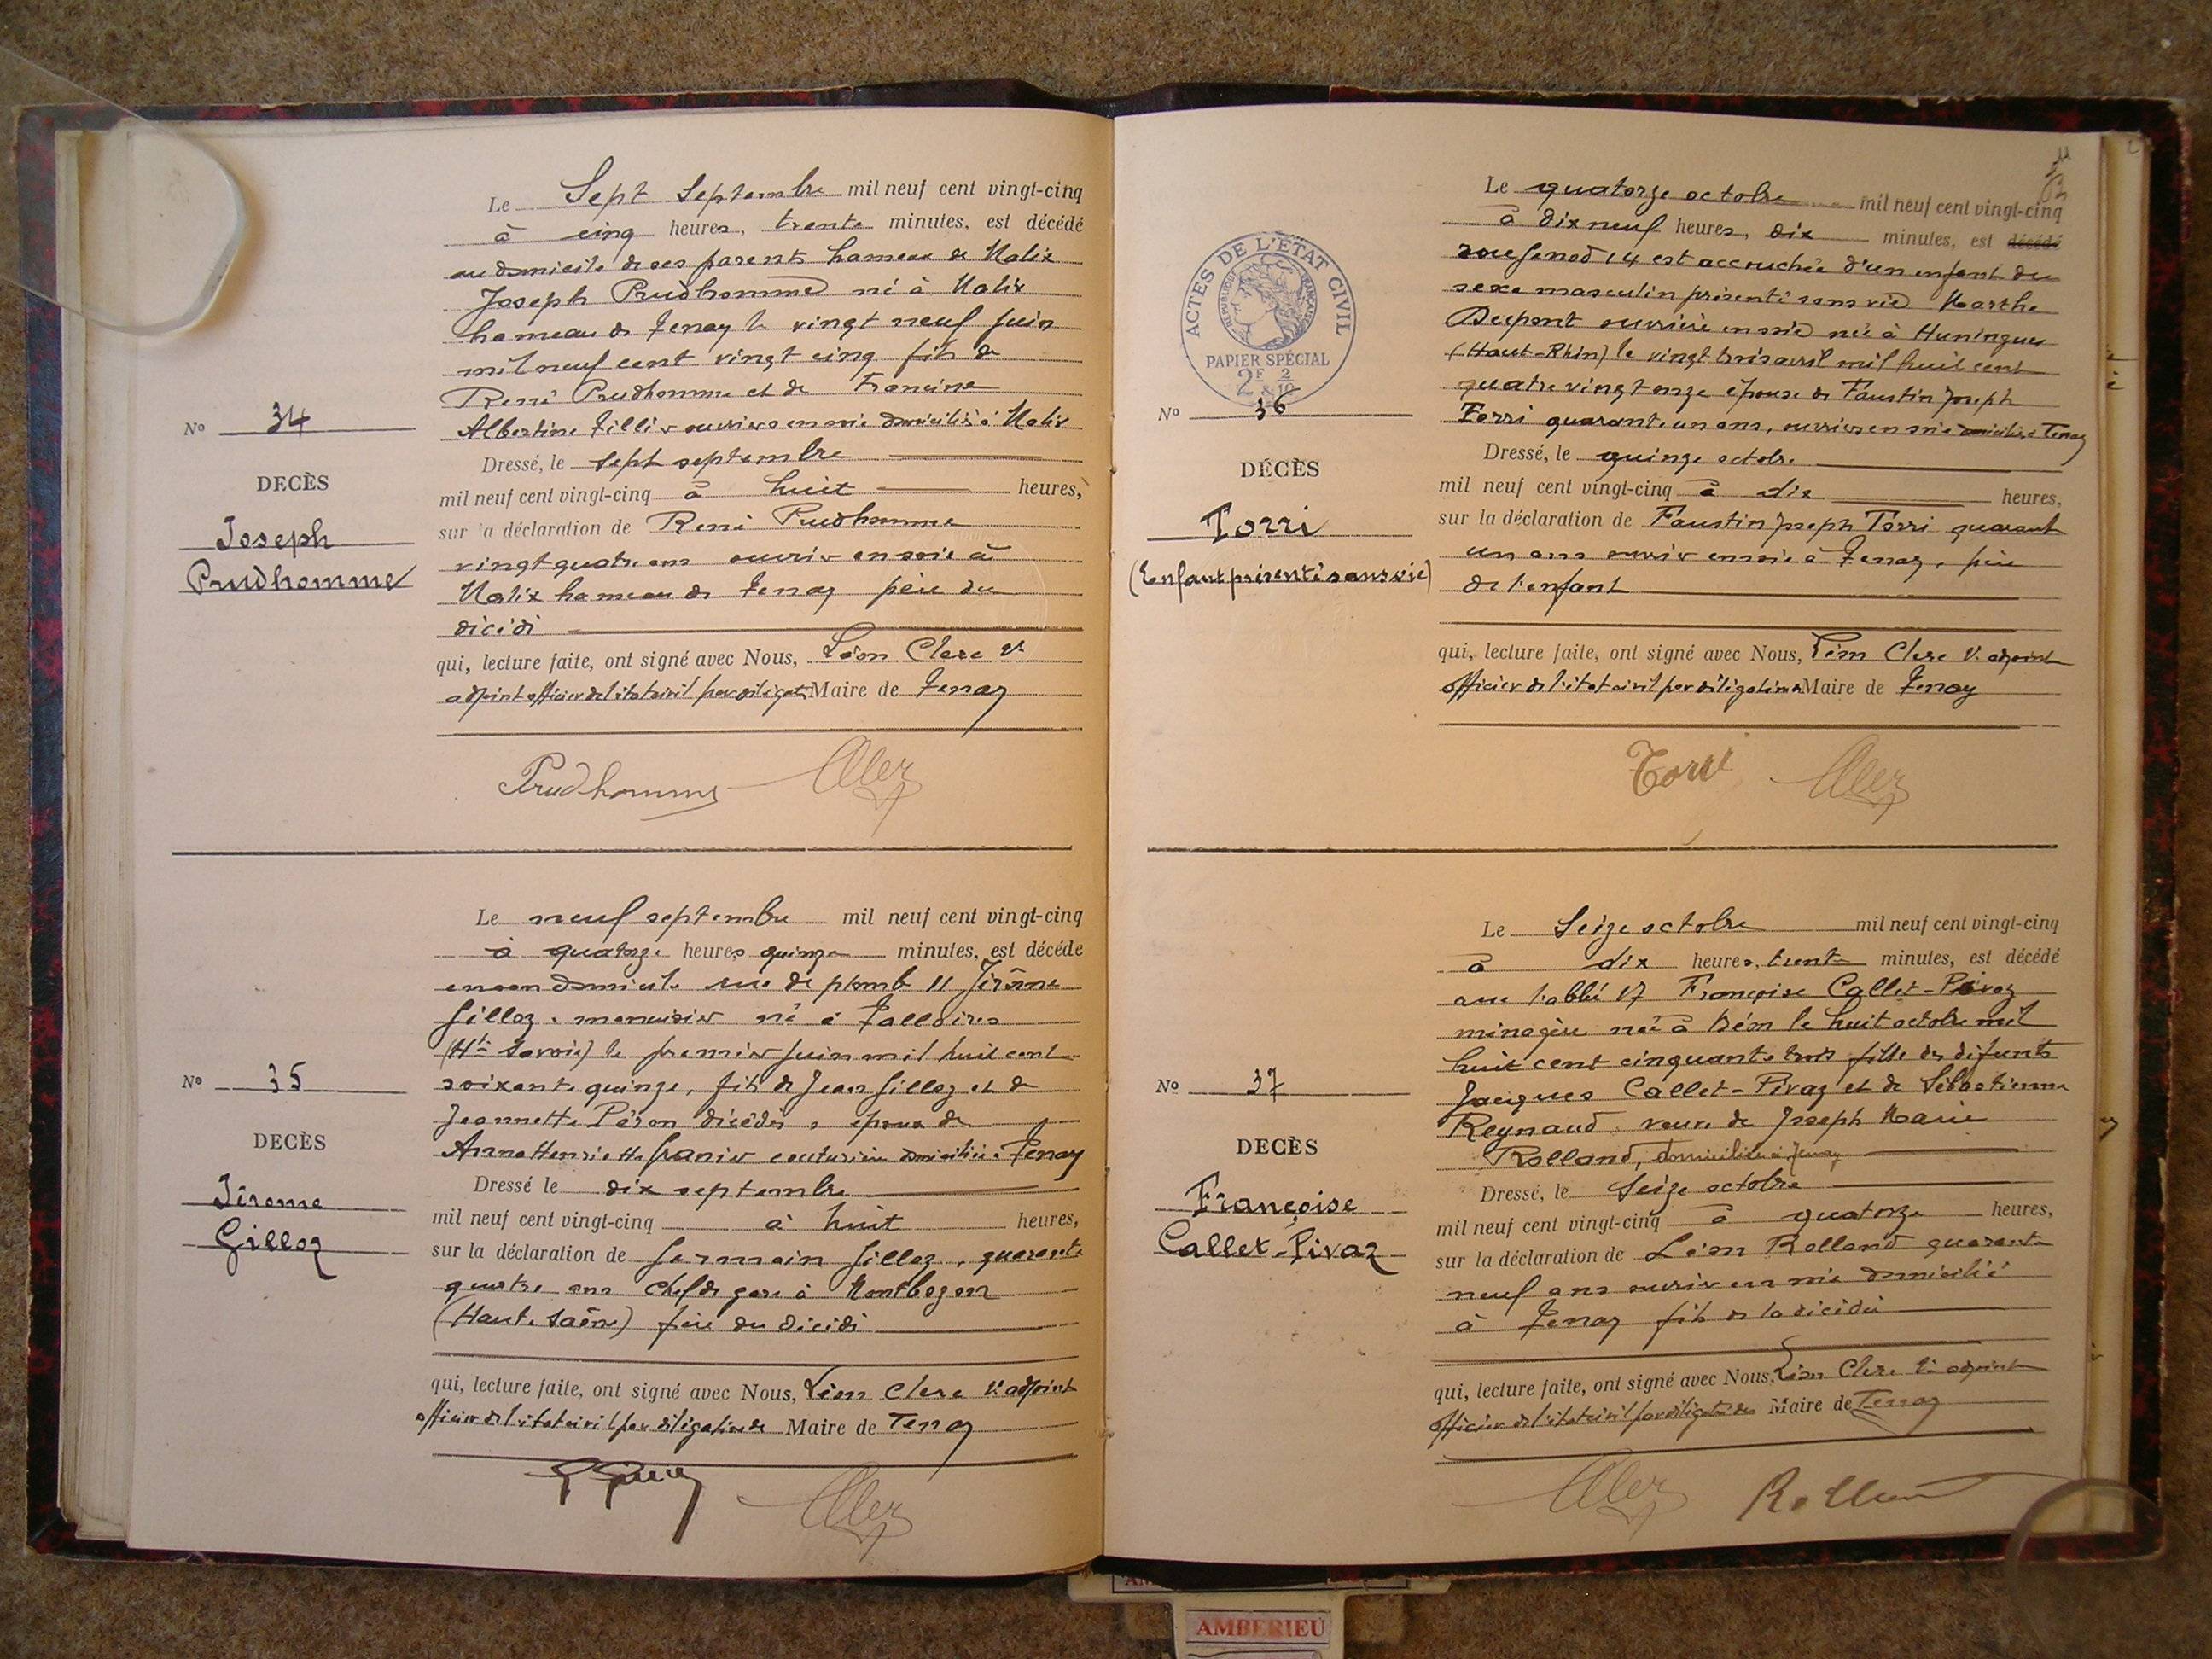 Le Sept Septembre mil neuf cent vingt-cinq
à cinq heures, trente minutes, est décédé
au domicile de ses parents hameau de Malix
Joseph Prudhomme né à Malix
hameau de Tenay le vingt neuf juin
mil neuf cent vingt cinq fils de
René Prudhomme et de Francine
Albertine ouvriers en soie domiciliés à Malix
No 34
DECÈS
Joseph
Prudhomme
Dressé, le sept septembre
mil neuf cent vingt-cinq à huit heures,
sur la déclaration de René Prudhomme
vingt quatre ans ouvrier en soie à
Malix hameau de Tenay père du
décédé
qui, lecture faite, ont signé avec Nous, Léon Clerc
adjoint officier de l'état civil par délégat. Maire de Tenay
Prudhomme
Le neuf septembre mil neuf cent vingt-cinq
à quatorze heures quinze minutes, est décédé
en son domicile rue de plomb 11 Jérôme
Gilloz, menuisier né à Talloires
(Hte Savoie) le premier juin mil huit cent
soixante quinze, fils de Jean Gilloz et de
Jeannette Péron décédés, époux de
Anna Henriette couturière domiciliée à Tenay
No 35
DECÈS
Jérome
Gilloz
Dressé le dix septembre
mil neuf cent vingt-cinq à huit heures,
sur la déclaration de Germain Gilloz, quarante
quatre ans chef de gare à Montbozon
(Haute Saône) frère du décédé
qui, lecture faite, ont signé avec Nous, Léon Clerc adjoint
officier de l'état civil par délégation de Maire de Tenay
Le quatorze octobre mil neuf cent vingt-cinq
à dix neuf heures, dix minutes, est décédé
rue Genod 14 est accouchée d'un enfant du
sexe masculin présenté sans vie Marthe
Dupont ouvrière en soie née à Huningue
(Haut-Rhin) le vingt trois avril mil huit cent
quatre vingt onze épouse de Faustin Joseph
Torri quarante un ans, ouvrier en soie domiciliés à Tenay
ACTES DE L'ÉTAT CIVIL
RÉPUBLIQUE FRANÇAISE
PAPIER SPÉCIAL
2F & 2/10
No 36
DÉCÈS
Torri
(Enfant présenté sans vie)
Dressé, le quinze octobre
mil neuf cent vingt-cinq à dix heures,
sur la déclaration de Faustin Joseph Torri quarante
un ans ouvrier en soie à Tenay, père
de l'enfant
qui, lecture faite, ont signé avec Nous, Léon Clerc adjoint
officier de l'état civil par délégation Maire de Tenay
Torri
Le Seize octobre mil neuf cent vingt-cinq
à dix heures, trente minutes, est décédé
rue l'abbé 17 Françoise Callet-Pivaz
ménagère née à le huit octobre mil
huit cent cinquante trois fille des défunts
Jacques Callet-Pivaz et de Sébastienne
Reynaud, veuve de Joseph Marie
Rolland, domiciliée à Tenay
No 37
DECÈS
Françoise
Callet-Pivaz
Dressé, le Seize octobre
mil neuf cent vingt-cinq à quatorze heures,
sur la déclaration de Léon Rolland quarante
neuf ans ouvrier en soie domicilié
à Tenay fils de la décédée
qui, lecture faite, ont signé avec Nous, Léon Clerc adjoint
officier de l'état civil par délégation de Maire de Tenay
Rolland
AMBERIEU